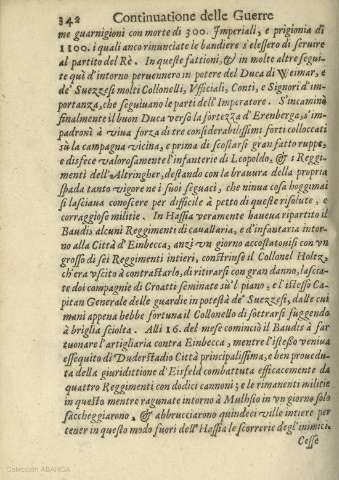 342 Continuatione delle Guerre
me guarnigioni con morte di 300. Imperiali, e prigionia di
1100. i quali anco rinunciate le bandiere s'elessero di seruire
al partito del Rè. In queste fattioni, & in molte altre segui-
te quì d'intorno peruennero in potere del Duca di Weimar, e
de' Suezzesi molti Collonelli, Vfficiali, Conti, e Signori d'im-
portanza, che seguiuano le parti dell'Imperatore. S'incaminò
finalmente il buon Duca verso la fortezza d'Erenberga, s'im-
padronì à viua forza di tre considerabilissimi forti colloccati
sù la campagna vicina, e prima di scostarsi gran fatto ruppe,
e disfece valorosamente l'infanterie di Leopoldo, & i Reggi-
menti dell'Altringher, destando con la brauura della propria
spada tanto vigore ne i suoi seguaci, che niuna cosa hoggimai
si lasciaua conoscere per difficile à petto di queste risolute, e
corraggiose militie. In Hassia veramente haueua ripartito il
Baudis alcuni Reggimenti di cauallaria, e d'infantaria intor-
no alla Città d'Einbecca, anzi vn giorno accostatousi con vn
grosso di sei Reggimenti intieri, constrinse il Collonel Holtz,
ch'era vscito à contrastarlo, di ritirarsi con gran danno, lascia-
te doi compagnie di Croatti seminate sù'l piano, e l'istesso Ca-
pitan Generale delle guardie in potestà de' Suezzesi, dalle cui
mani appena hebbe fortuna il Collonello di sottrarsi fuggendo
à briglia sciolta. Alli 16. del mese cominciò il Baudis à far
tuonare l'artigliaria contro Einbecca, mentre l'istesso veniua
essequito di Duderstadio Città principalissima, e ben prouedu-
ta della giuridittione d'Eisfeld combattuta efficacemente da
quattro Reggimenti con dodici cannoni; e le rimanenti militie
in questo mentre ragunate intorno à Mulhsio in vn giorno solo
saccheggiarono, & abbrucciarono quindeci ville intiere per
tener in questo modo fuori dell'Hassia le scorrerie degl'inimici.
Cesse
Colección ABANCA